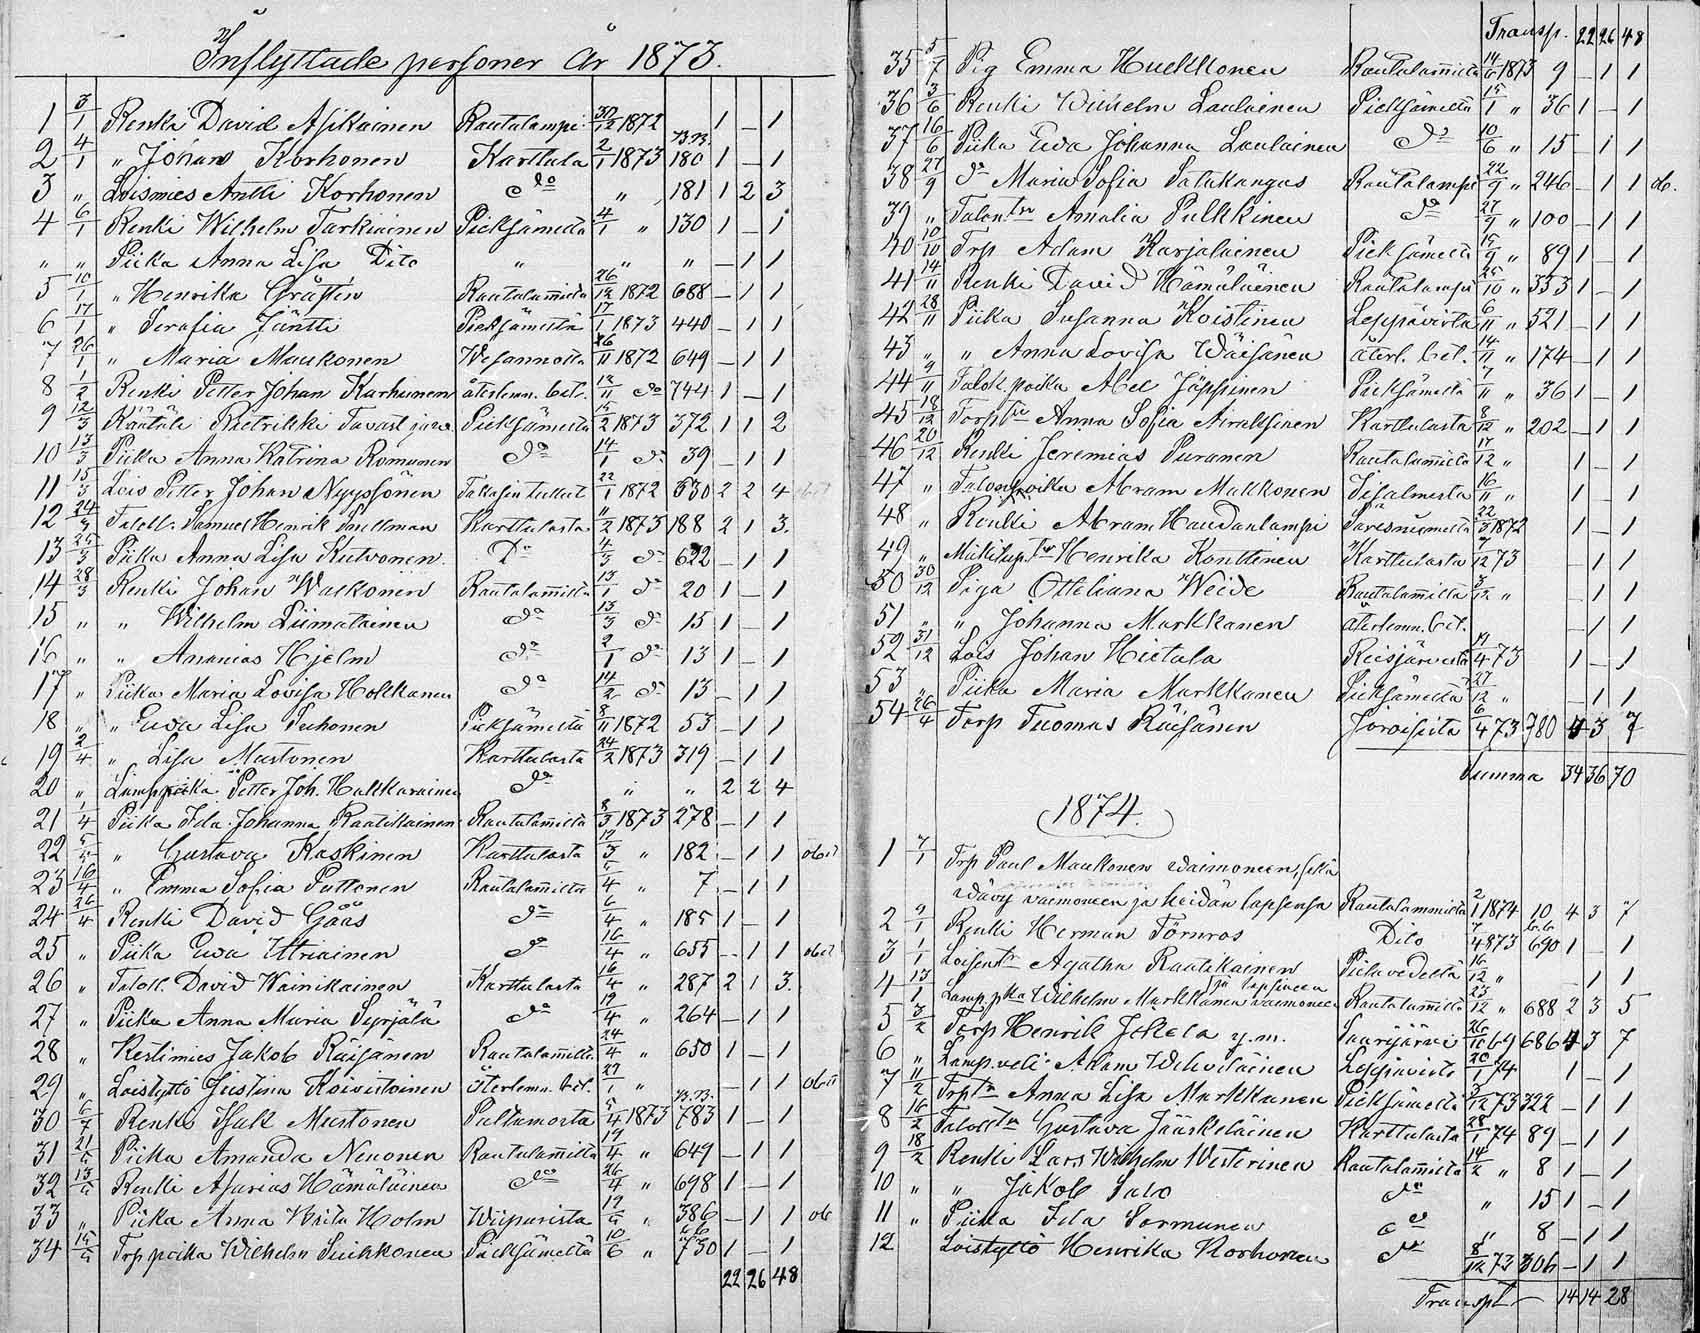 Inflyttade personer År 1873.
1 3/1 Renki David Asikainen Rautalampi 30/12 1872 1 – 1
2 4/1 " Johan Korhonen Karttula 2/1 1873 180 1 – 1
3 " Loismies Antti Korhonen do " 181 1 2 3
4 6/1 Renki Wilhelm Tarkiainen Pieksämeltä 4/1 " 130 1 – 1
" " Piika Anna Lisa Dito " " " – 1 1
5 10/1 " Henrika Gråsten Rautalammilta 26/12 1872 688 – 1 1
6 17/1 " Serafia Jäntti Pieksämeltä 17/1 1873 440 – 1 1
7 26/1 " Maria Maukonen Wesannolta 26/11 1872 649 – 1 1
8 1/2 Renki Petter Johan Karhunen återlemn. bet. 12/11 do 744 1 – 1
9 12/3 Räätäli Pietrikki Tavast Pieksämeltä 15/2 1873 372 1 1 2
10 13/3 Piika Anna Katrina Romunen do 14/1 do 39 – 1 1
11 15/3 Lois Petter Johan Nyyssönen Takasin tullut 22/1 1872 530 2 2 4
12 24/3 Taloll. Samuel Henrik Snellman Karttulasta 11/2 1873 188 2 1 3.
13 25/3 Piika Anna Lisa Kutvonen Do 4/3 do 622 – 1 1
14 28/3 Renki Johan Walkonen Rautalammilta 13/1 do 20 1 – 1
15 " " Wilhelm Liimatainen do 13/3 do 15 1 – 1
16 " " Ananias Hjelm do 2/1 do 13 1 – 1
17 " Piika Maria Lovisa Holkkanen do 14/2 do 13 – 1 1
18 " " Ewa Lisa Puhonen Pieksämeltä 8/11 1872 53 – 1 1
19 2/4 " Lisa Mustonen Karttulasta 24/2 1873 319 – 1 1
20 " Lamppoika Petter Joh. Hulkkarainen do " " 2 2 4
21 1/4 Piika Ida Johanna Rautikainen Rautalammilta 8/3 1873 278 – 1 1
22 " Gustava Kaskinen Karttulasta 12/3 " 182 – 1 1
23 16/4 " Emma Sofia Puttonen Rautalammilta 5/4 " 7 – 1 1
24 26/4 Renki David Gåås do 6/4 " 185 1 – 1
25 " Piika Ewa Ittriainen do 16/4 " 655 – 1 1
26 " Taloll. David Wainikainen Karttulasta 16/4 " 287 2 1 3.
27 " Piika Anna Maria Syrjälä do 19/4 " 264 – 1 1
28 " Kestimies Jakob Räisänen Rautalammilta 24/4 " 650 1 – 1
29 " Loistyttö Justina Koivistoinen återlemn. bet. 27/1 " – 1 1
30 6/7 Renki Isak Mustonen Paltamosta 5/4 1873 783 1 – 1
31 Piika Amanda Neuonen Rautalammilta 19/4 " 649 – 1 1
32 Renki Asarias Hämäläinen do 26/4 " 698 1 – 1
33 " Piika Anna Brita Holm Wiipurista " 386 – 1 1 ob
34 Trp poika Wilhelm Siikkonen Pieksämeltä 10/6 " 730 1 – 1
22 26 48
Transp. 22 26 48
35 5/7 Pig Emma Hukkonen Rautalammilta 14/6 1873 9 – 1 1
36 3/6 Renki Wilhelm Laulainen Pieksämeltä 15/1 " 36 1 – 1
37 16/6 Piika Ewa Johanna Laulainen do 10/6 " 15 – 1 1
38 27/9 do Maria Sofia Salukangas Rautalampi 22/9 " 246 – 1 1 ob.
39 " Talontr Amalia Pulkkinen do 27/9 " 100 – 1 1
40 10/10 Trp Adam Karjalainen Pieksämeltä 19/9 " 89 1 – 1
41 14/11 Renki David Hämäläinen Rautalampi 25/10 " 333 1 – 1
42 28/11 Piika Susanna Koistinen Leppävirta 6/11 " 521 – 1 1
43 " " Anna Lovisa Wäisänen återl. bet. 14/11 " 174 – 1 1
44 9/11 Talok. poika Abel Jäppinen Pieksämeltä 7/11 " 36 1 – 1
45 18/12 Torp Anna Sofia Airaksinen Karttulasta 8/12 " 202 – 1 1
46 20/12 Renki Jeremias Puranen Rautalammilta 17/12 " 1 – 1
47 " Talonpoika Abram Makkonen Iisalmesta 16/11 " 1 – 1
48 " Renki Abram Haudanlampi 22/3 1872 1 – 1
49 " Henrika Konttinen Karttulasta 7/12 73 – 1 1
50 30/12 Piga Otteliana Weide Rautalammilta 3/12 " – 1 1
51 " " Johanna Markkanen återlemn. bet. – 1 1
52 31/12 Lois Johan Hietala Reisjärvestä 19/4 73 1 – 1
53 " Piika Maria Markkanen Pieksämeltä 27/12 " – 1 1
54 26/4 Torp Tuomas Räisänen Joroisista 6/4 73 780 4 3 7
Summa 34 36 70
1874.
1 7/1 Trp Paul Maukonen waimoneen, sekä
Wävy vaimoneen ja heidän lapsensa Rautalammilta 2/1 1874 10 4 3 7
2 9/1 Renki Herman Törnros Dito 7/4 873 690 1 – 1
3 1/1 Loisentr Agatha Rautikainen Pielavedeltä 16/12 " – 1 1
4 13/1 Lamp. pka Wilhelm Markkanen vaimoneen ja lapsineen Rautalammilta 23/12 " 688 2 3 5
5 3/2 Torp Henrik Jokela y.m. Saarijärvi 26/10 69 686 4 3 7
6 " Lamp. veli Adam Wehviläinen Leppävirta 20/1 74 1 – 1
7 11/2 Trptr Anna Lisa Markkanen Pieksämeltä 3/12 73 322 – 1 1
8 16/2 Talolltr Gustava Jääskeläinen Karttulasta 28/1 74 89 – 1 1
9 18/2 Renki Lars Wilhelm Westerinen Rautalammilta 14/2 " 8 1 – 1
10 " " Jakob Salo do " 15 1 – 1
11 " Piika Ida Sormunen do " 8 – 1 1
12 Loistyttö Henrika Korhonen do 8/12 73 306 – 1 1
Transpt 14 14 28